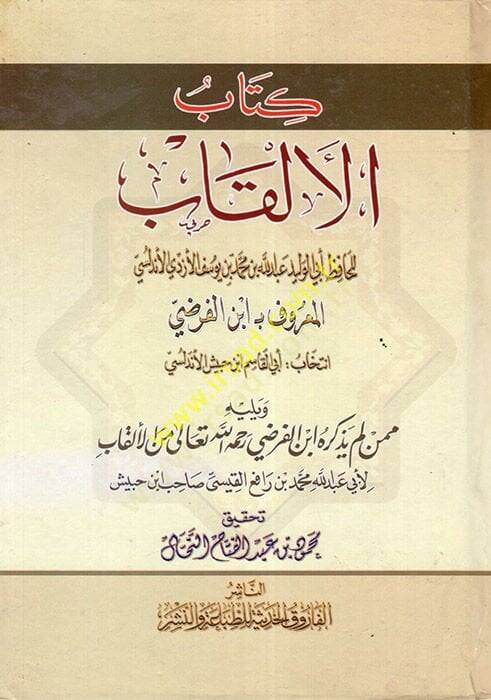 كِتَابُ
الأَلْقَابْ
للحافظ أبي الوليد عبدالله بن محمد بن يوسف الأزدي الأندلسي
المعروف بـ ابن الفرضيّ
انتخاب: أبي القاسم ابن حبيش الأندلسيّ
ويليه
ممن لم يذكره ابن الفرضي رحمه الله تعالى من الألقاب
لأبي عبدالله محمد بن رافع القيسيّ صاحب ابن حبيش
تحقيق
محمود بن عبد الفتاح النحال
النَّاشِرُ
الفاروق الحديثة للطباعة والنشر